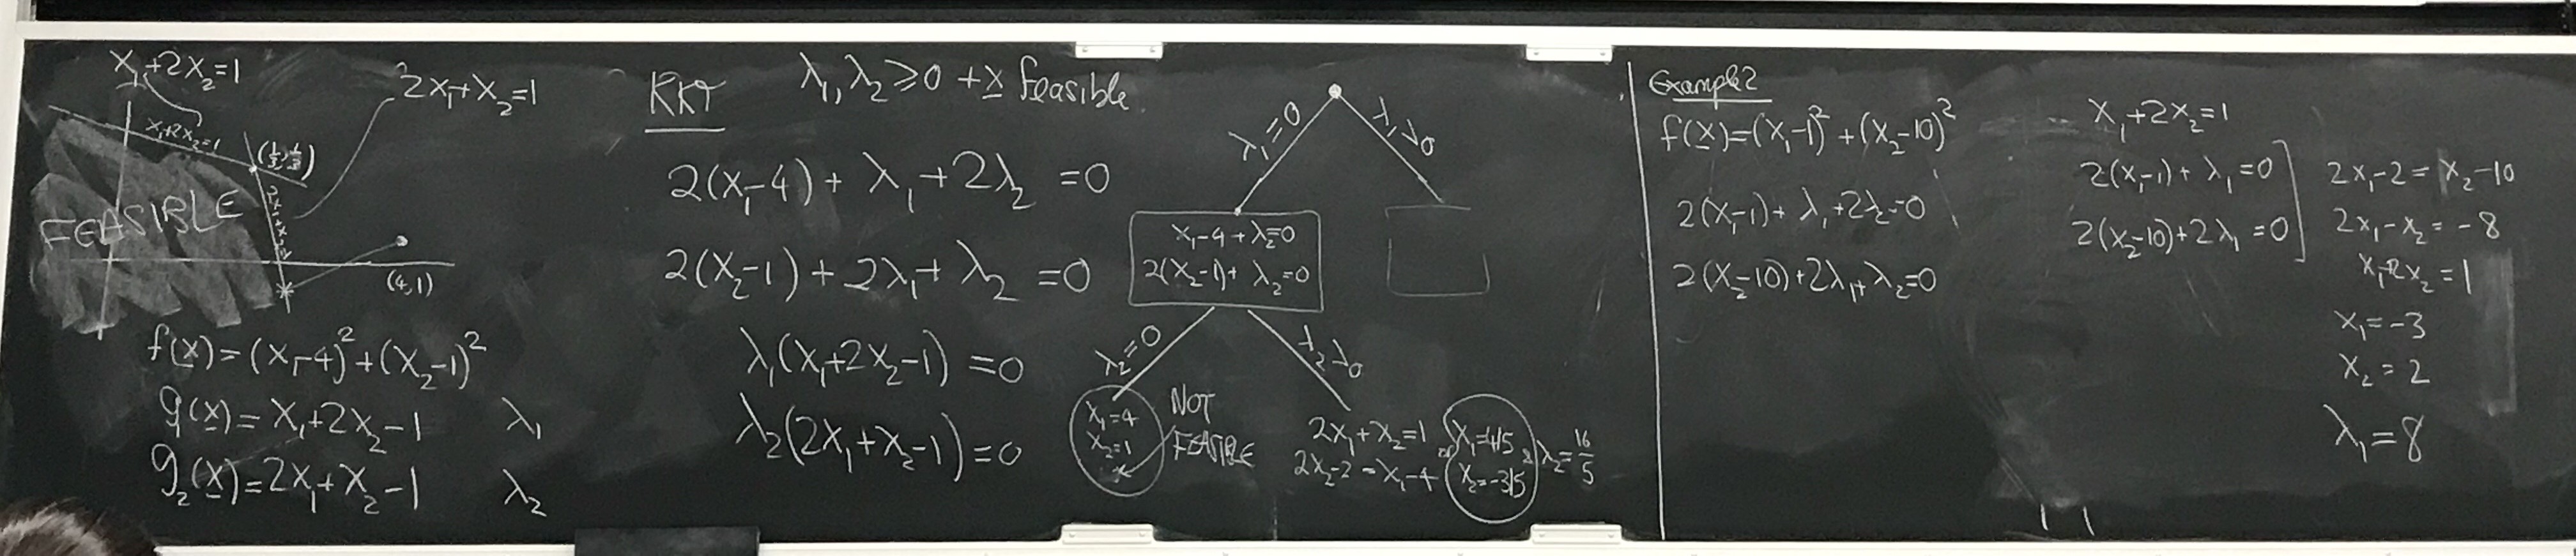 x₁+2x₂=1
2x₁+x₂=1
x₁+2x₂=1
(1/3,1/3)
2x₁+x₂=1
FEASIBLE
(4,1)
f(x)=(x₁-4)²+(x₂-1)²
g(x)=x₁+2x₂-1 λ₁
g₂(x)=2x₁+x₂-1 λ₂
KKT λ₁,λ₂≥0 + x feasible.
2(x₁-4)+λ₁+2λ₂=0
2(x₂-1)+2λ₁+λ₂=0
λ₁(x₁+2x₂-1)=0
λ₂(2x₁+x₂-1)=0
λ₁=0
λ₁>0
x₁-4+λ₂=0
2(x₂-1)+λ₂=0
λ₂=0
λ₂>0
x₁=4
x₂=1
NOT
FEASIBLE
2x₁+x₂=1
2x₂-2=x₁-4
x₁=4/5
x₂=-3/5
λ₂=16/5
Example 2
f(x)=(x₁-1)²+(x₂-10)²
2(x₁-1)+λ₁+2λ₂=0
2(x₂-10)+2λ₁+λ₂=0
x₁+2x₂=1
2(x₁-1)+λ₁=0
2(x₂-10)+2λ₁=0
2x₁-2=x₂-10
2x₁-x₂=-8
x₁+2x₂=1
x₁=-3
x₂=2
λ₁=8